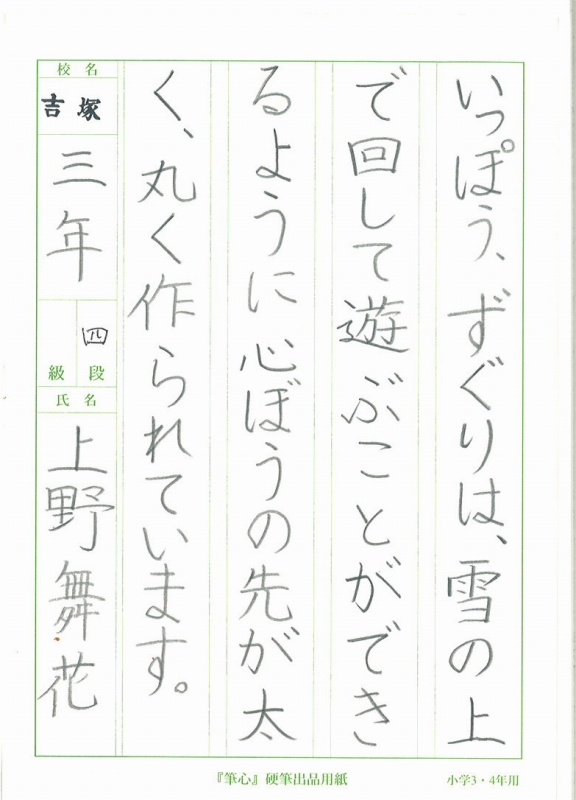 いっぽう、ずぐりは、雪の上
で回して遊ぶことができ
るように心ぼうの先が太
く、丸く作られています。
校名
吉塚
三年
四
段
級
氏名
上野舞花
『筆心』硬筆出品用紙
小学3・4年用